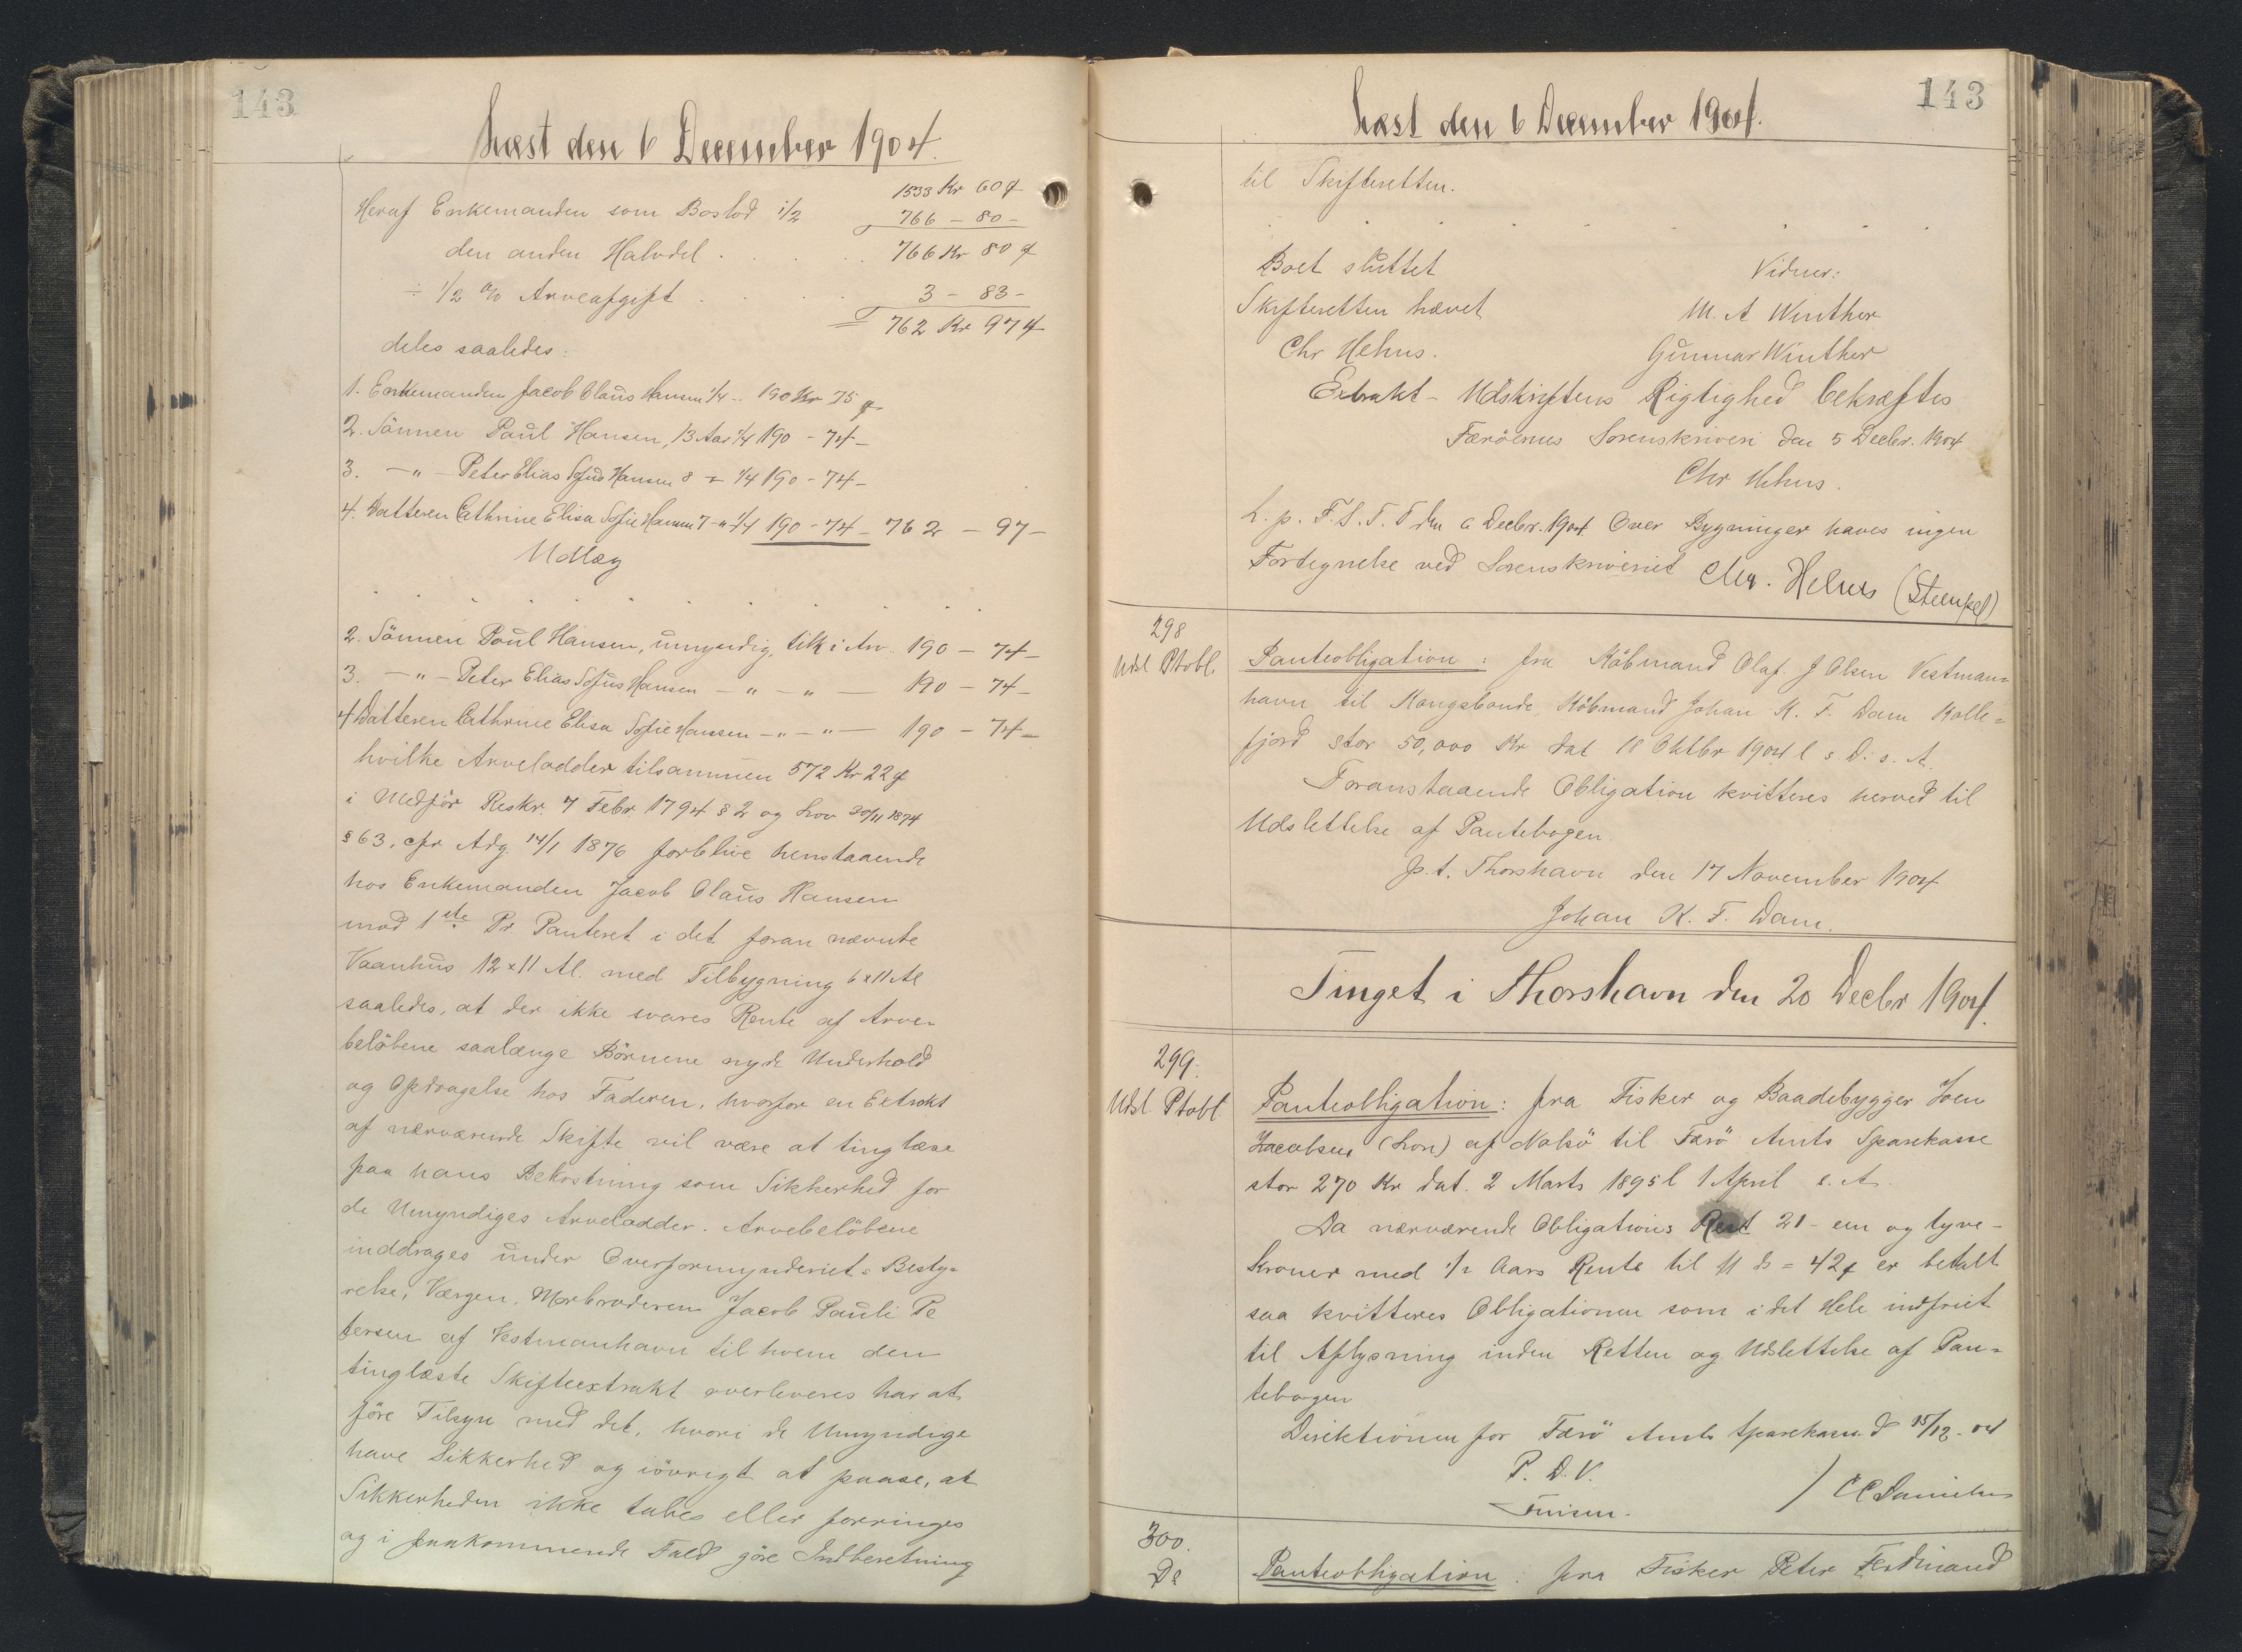 143
Læst den 6 December 1904.
1533 Kr 60 ø
Heraf Enkemanden som Boslod 1/2 766 - 80 -
den anden Halvdel . . . . 766 Kr 80 ø
÷ 1/2 % Arveafgift . . . . 3 - 83 -
= 762 Kr 97 ø
deles saaledes:
1. Enkemanden Jacob Claus Hansen 1/4 .. 190 Kr 75 ø
2. Sönnen Paul Hansen, 13 Aar 1/4 190 - 74 -
3. - " - Peter Elias Sofus Hansen 8 - 1/4 190 - 74 -
4. Datteren Cathrine Elisa Sofie Hansen 7 - " 1/4 190 - 74 - 762 - 97 -
Udlæg
. . . . . . . . . . . .
2. Sönnen Poul Hansen, umyndig, tilk i Arv. 190 - 74 -
3. - " - Peter Elias Sofus Hansen - " - " - 190 - 74 -
4 Datteren Cathrine Elisa Sofie Hansen - " - " - 190 - 74 -
hvilke Arvelodder tilsammen 572 Kr 22 ø
i Medför Reskr. 7 Febr 1794 § 2 og Lov 30/11 1874
§ 63, cfr Adg. 14/1 1876 forblive henstaaende
hos Enkemanden Jacob Claus Hansen
mod 1ste Pr Panteret i det foran nævnte
Vaanhus 12 x 11 Al. med Tilbygning 6 x 11 Al
saaledes, at der ikke svares Rente af Arve-
belöbene saalænge Börnene nyde Underhold
og Opdragelse hos Faderen, hvorfor en Extrakt
af nærværende Skifte vil være at tinglæse
paa hans Bekostning som Sikkerhed for
de Umyndiges Arvelodder. Arvebelöbene
inddrages under Overformynderiets Besty=
relse, Værgen, Morbroderen Jacob Pauli Pe
tersen af Vestmanhavn til hvem den
tinglæste Skifteextrakt overleveres har at
före Tilsyn med det, hvori de Umyndige
have Sikkerhed og iövrigt at paase, at
Sikkerheden ikke tabes eller forringes
og i paakommende Fald göre Indberetning
143
Læst den 6 December 1904.
til Skifteretten.
. . . . . . .
Boet sluttet Vidner:
Skifteretten hævet M. A Winther
Chr Hehus. Gunnar Winther
Extrakt - Udskriftens Rigtighed bekræftes
Færöernes Sorenskriveri den 5 Decbr. 1904
Chr Hehus.
L. p. F. S. T. T den 6 Decbr. 1904 Over Bygninger haves ingen
Fortegnelse ved Sorenskriveriet Chr. Hehus (Stempel)
298
Udsl Ptobl.
Panteobligation: fra Köbmand Olaf J Olsen Vestman=
havn til Kongsbonde, Köbmand Johan K. F. Dam Kolle=
fjord stor 50,000 Kr dat 18 Oktbr 1904 l s. D. s. A.
Foranstaaende Obligation kvitteres herved til
Udslettelse af Pantebogen.
p. t. Thorshavn den 17 November 1904
Johan K. F. Dam.
Tinget i Thorshavn den 20 Decbr 1904.
299.
Udsl. Ptobl.
Panteobligation: fra Fisker og Baadebygger Joen
Jacobsen (Lon) af Nolsö til Færö Amts Sparekasse
stor 270 Kr dat. 2 Marts 1895 l 1 April s. A.
Da nærværende Obligations Rest 21 - en og tyve -
Kroner med 1/2 Aars Rente til 11 ds = 42 ø er betalt
saa kvitteres Obligationen som i det Hele indfriet
til Aflysning inden Retten og Udslettelse af Pan=
tebogen
Direktionen for Færö Amts Sparekasse d 15/12 - 04
P. D. V.
/ C C Danielsen
300.
Do
Panteobligation: fra Fisker Peter Ferdinand